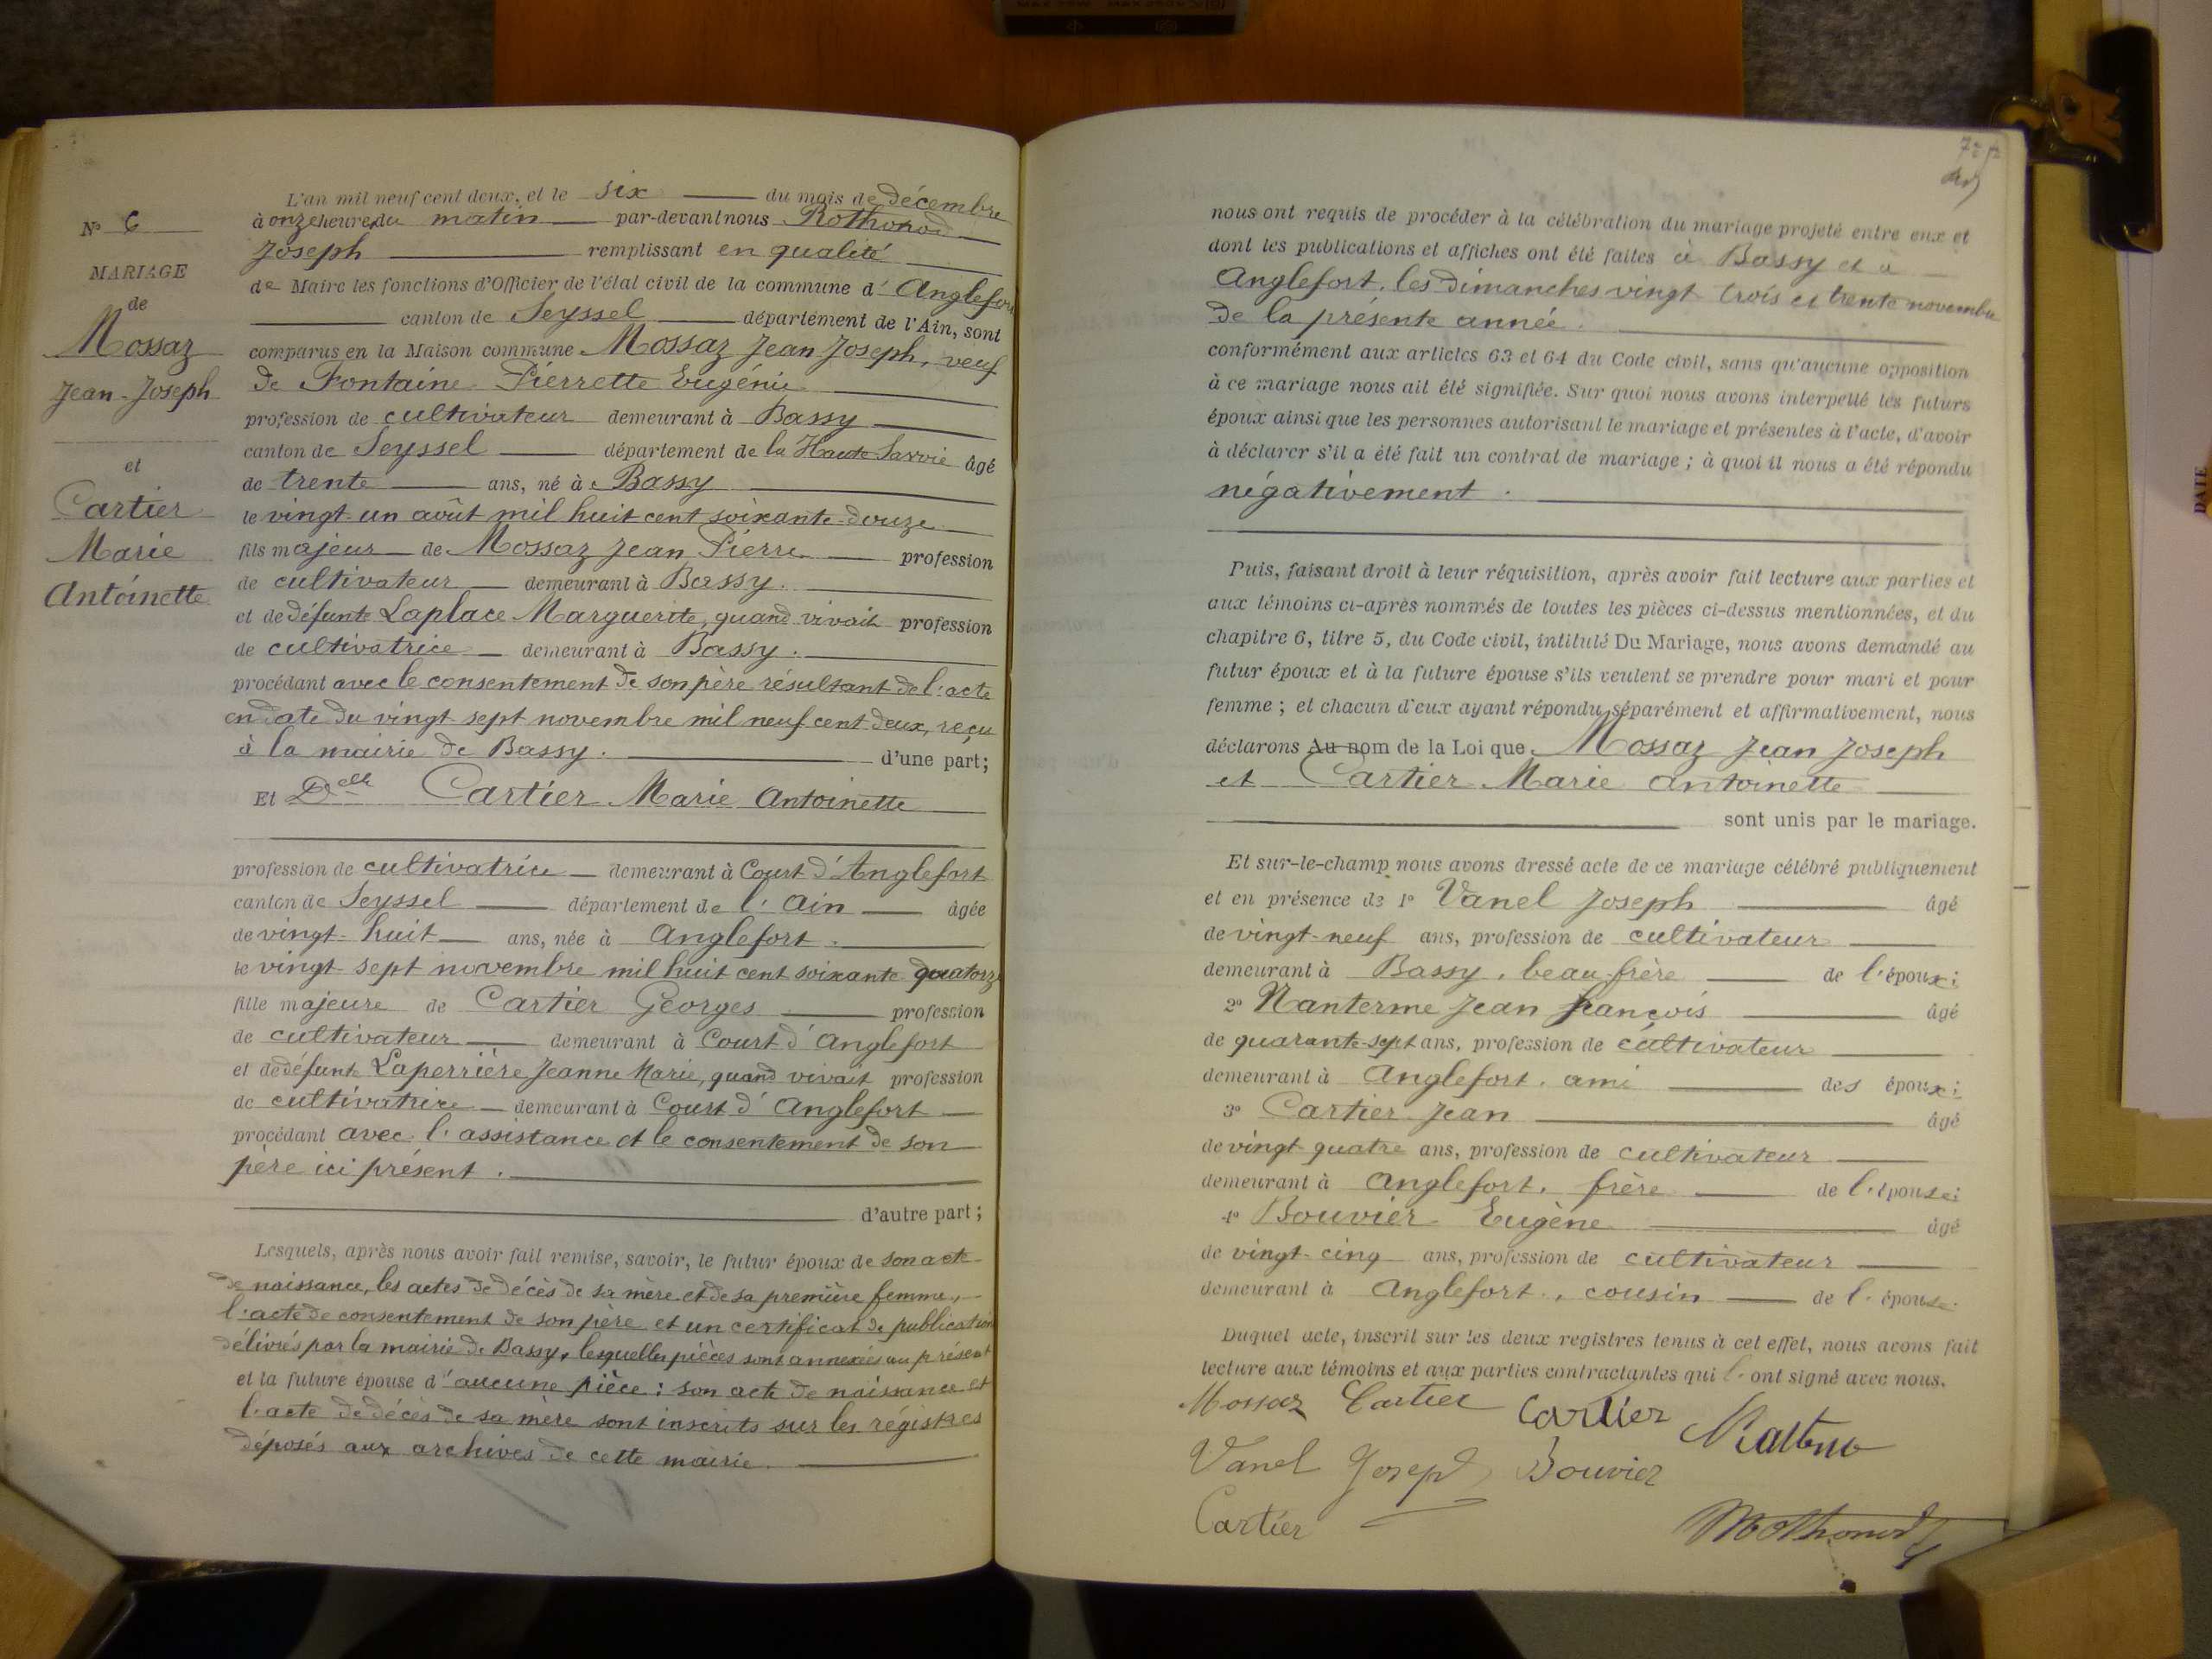 N° 6
MARIAGE
de
Mossaz
Jean-Joseph
et
Cartier
Marie
Antoinette
L'an mil neuf cent deux, et le six du mois de décembre
à onze heures du matin par-devant nous Rothonod
Joseph remplissant en qualité
de Maire les fonctions d'Officier de l'état civil de la commune d'Anglefort
canton de Seyssel département de l'Ain, sont
comparus en la Maison commune Mossaz Jean Joseph, veuf
de Fontaine Pierrette Eugénie
profession de cultivateur demeurant à Bassy
canton de Seyssel département de la Haute Savoie âgé
de trente ans, né à Bassy
le vingt-un août mil huit cent soixante-douze
fils majeur de Mossaz Jean Pierre profession
de cultivateur demeurant à Bassy.
et de défunte Laplace Marguerite, quand vivait profession
de cultivatrice demeurant à Bassy.
procédant avec le consentement de son père résultant de l'acte
en date du vingt-sept novembre mil neuf cent deux, reçu
à la mairie de Bassy. d'une part;
Et Delle Cartier Marie Antoinette
profession de cultivatrice demeurant à Court d'Anglefort
canton de Seyssel département de l'Ain âgée
de vingt-huit ans, née à Anglefort.
le vingt-sept novembre mil huit cent soixante quatorze
fille majeure de Cartier Georges profession
de cultivateur demeurant à Court d'Anglefort
et de défunte Laperrière Jeanne Marie, quand vivait profession
de cultivatrice demeurant à Court d'Anglefort
procédant avec l'assistance et le consentement de son
père ici présent.
d'autre part;
Lesquels, après nous avoir fait remise, savoir, le futur époux de son acte
de naissance, les actes de décès de sa mère et de sa première femme,
l'acte de consentement de son père et un certificat de publication
délivrés par la mairie de Bassy, lesquelles pièces sont annexées au présent
et la future épouse d'aucune pièce: son acte de naissance et
l'acte de décès de sa mère sont inscrits sur les régistres
déposés aux archives de cette mairie.
nous ont requis de procéder à la célébration du mariage projeté entre eux et
dont les publications et affiches ont été faites à Bassy et à
Anglefort, les dimanches vingt-trois et trente novembre
de la présente année.
conformément aux articles 63 et 64 du Code civil, sans qu'aucune opposition
à ce mariage nous ait été signifiée. Sur quoi nous avons interpellé les futurs
époux ainsi que les personnes autorisant le mariage et présentes à l'acte, d'avoir
à déclarer s'il a été fait un contrat de mariage; à quoi il nous a été répondu
négativement.
Puis, faisant droit à leur réquisition, après avoir fait lecture aux parties et
aux témoins ci-après nommés de toutes les pièces ci-dessus mentionnées, et du
chapitre 6, titre 5, du Code civil, intitulé Du Mariage, nous avons demandé au
futur époux et à la future épouse s'ils veulent se prendre pour mari et pour
femme; et chacun d'eux ayant répondu séparément et affirmativement, nous
déclarons Au nom de la Loi que Mossaz Jean Joseph
et Cartier Marie Antoinette
sont unis par le mariage.
Et sur-le-champ nous avons dressé acte de ce mariage célébré publiquement
et en présence de 1° Vanel Joseph âgé
de vingt-neuf ans, profession de cultivateur
demeurant à Bassy, beau-frère de l'époux;
2° Nanterme Jean François âgé
de quarante-sept ans, profession de cultivateur
demeurant à Anglefort, ami des époux;
3° Cartier Jean âgé
de vingt-quatre ans, profession de cultivateur
demeurant à Anglefort, frère de l'épouse;
4° Bouvier Eugène âgé
de vingt-cinq ans, profession de cultivateur
demeurant à Anglefort, cousin de l'épouse.
Duquel acte, inscrit sur les deux registres tenus à cet effet, nous avons fait
lecture aux témoins et aux parties contractantes qui l'ont signé avec nous.
Mossaz Cartier Cartier
Vanel Joseph Bouvier
Cartier
DATE